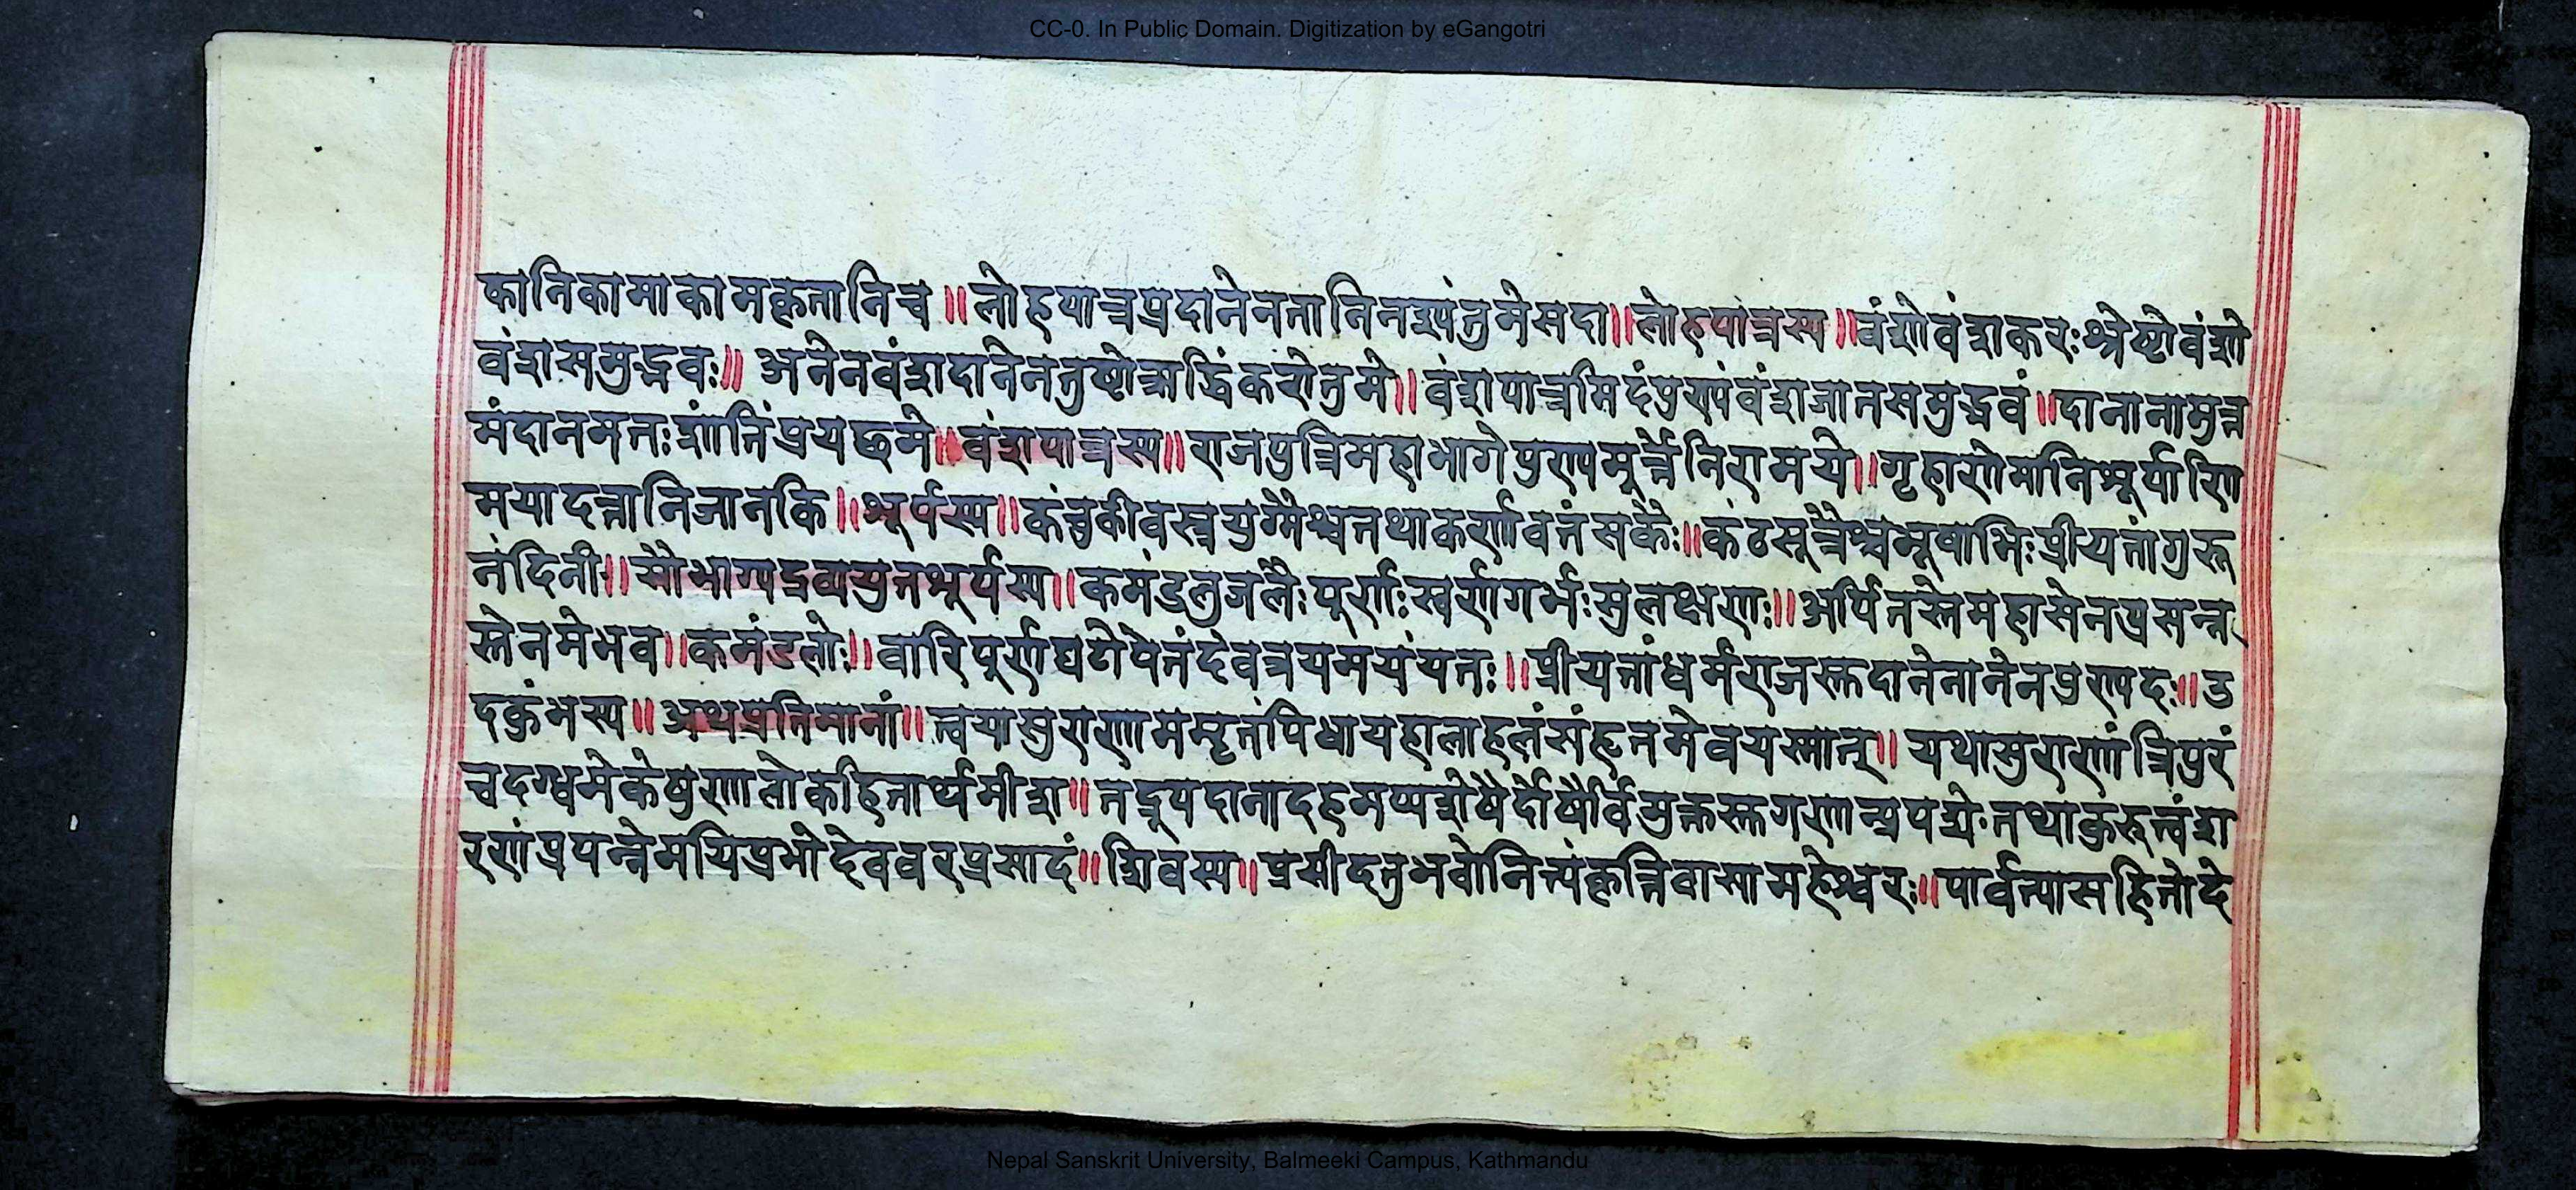 CC-0. In Public Domain. Digitization by eGangotri
कानिकामाकामकृतानिच ॥ लोहपात्रप्रदानेनतानिनश्यंतुमेसदा ॥ लोहपात्रस्य ॥ वंशोवंशकरःश्रेष्ठोवंशो
वंशसमुद्भवः ॥ अनेनवंशदानेनतुष्टोऋद्धिंकरोतुमे ॥ वंशपात्रमिदंपुण्यंवंशजातसमुद्भवं ॥ दानानामुत्त
मंदानमतःशांतिंप्रयछमे ॥ वंशपात्रस्य ॥ राजपुत्रिमहाभागेपुण्यमूर्त्तेनिरामये ॥ गृहाणेमानिशूर्पाणि
मयादत्तानिजानकि ॥ शूर्पस्य ॥ कंचुकीवस्त्रयुग्मैश्चतथाकर्णावतंसकैः ॥ कंठसूत्रैश्चभूषाभिःप्रीयतांगुरु
नंदिनी ॥ सौभाग्यद्रव्ययुतशूर्पस्य ॥ कमंडलुजलैःपूर्णःस्वर्णगर्भःसुलक्षणः ॥ अर्पितस्तेमहासेनप्रसन्न
स्तेनमेभव ॥ कमंडलोः ॥ वारिपूर्णघटोपेतंदेवत्रयमयंयतः ॥ प्रीयतांधर्मराजस्तदानेनानेनपुण्यदः ॥ उ
दकुंभस्य ॥ अथप्रतिमानां ॥ त्वयासुराणाममृतंपिधायहालाहलंसंहृतमेवयस्मात् ॥ यथासुराणांत्रिपुरं
चदग्धमेकेषुणालोकहितार्थमीश ॥ तद्रूपदानादहमप्यशेषैर्दोषैर्विमुक्तस्तगणान्प्रपद्येःतथाकुरुत्वंश
रणंप्रपन्नेमयिप्रभोदेववरप्रसादं ॥ शिवस्य ॥ प्रसीदतुभवोनित्यंकृत्तिवासामहेश्वरः ॥ पार्वत्यासहितोदे
Nepal Sanskrit University, Balmeeki Campus, Kathmandu